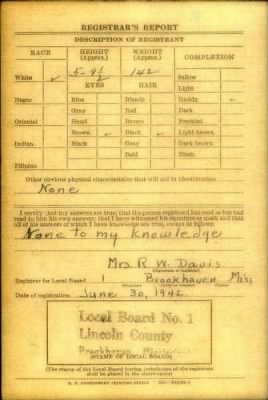 REGISTRAR'S REPORT
DESCRIPTION OF REGISTRANT
RACE HEIGHT (Approx.) WEIGHT (Approx.) COMPLEXION
White ✓ 5-9½ 142 Sallow
EYES HAIR Light
Negro Blue Blonde Ruddy ✓
Gray Red Dark
Oriental Hazel Brown Freckled
Brown ✓ Black ✓ Light brown
Indian Black Gray Dark brown
Bald Black
Filipino
Other obvious physical characteristics that will aid in identification
None
I certify that my answers are true; that the person registered has read or has had
read to him his own answers; that I have witnessed his signature or mark and that
all of his answers of which I have knowledge are true, except as follows:
None to my knowledge
Mrs R. W. Davis
(Signature of registrar)
Registrar for Local Board 1 Brookhaven Miss
Date of registration June 30, 1942
Local Board No. 1
Lincoln County
Brookhaven
(STAMP OF LOCAL BOARD)
(The stamp of the Local Board having jurisdiction of the registrant
shall be placed in the above space)
U. S. GOVERNMENT PRINTING OFFICE